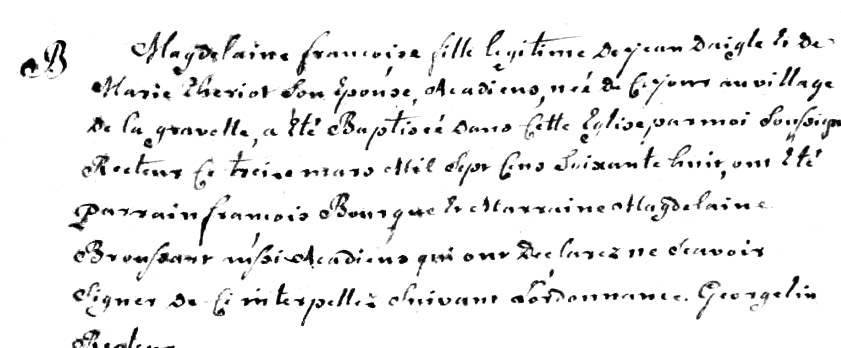 B Magdelaine francoise fille legitime de jean Daigle Et de
Marie Theriot Son Epouse, Acadiens, née de Ce jour au village
De la gravelle, a Eté Baptiseé dans Cette Eglise par moi Soussigné
Recteur Ce treize mars Mil Sept Cens Soixante huit, ont Eté
Parrain françois Bourque Et Marraine Magdelaine
Broussart aussi Acadiens qui ont Declarez ne Scavoir
Signer De Ce interpellez Suivant L'ordonnance. Georgelin
Recteur